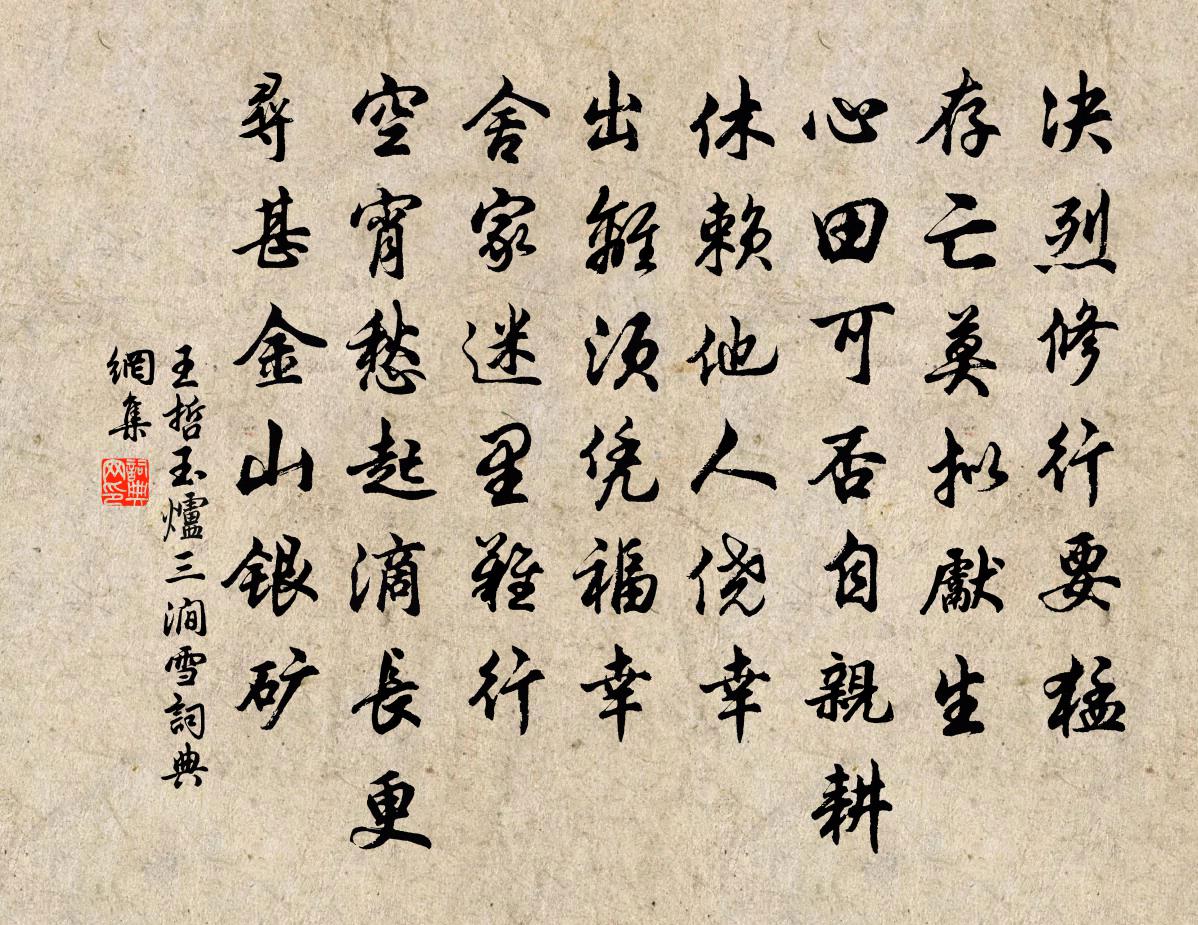 决烈修行要猛
存亡莫拟獻生
心田可否自親耕
休赖他人侥幸
出離须凭福幸
舍家迷里難行
空宵愁起滴長更
尋甚金山銀矿
王哲玉爐三澗雪詞典
網集
詞典
网印